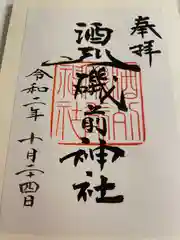 奉拝
酒列磯前神社
令和二年十月二十四日